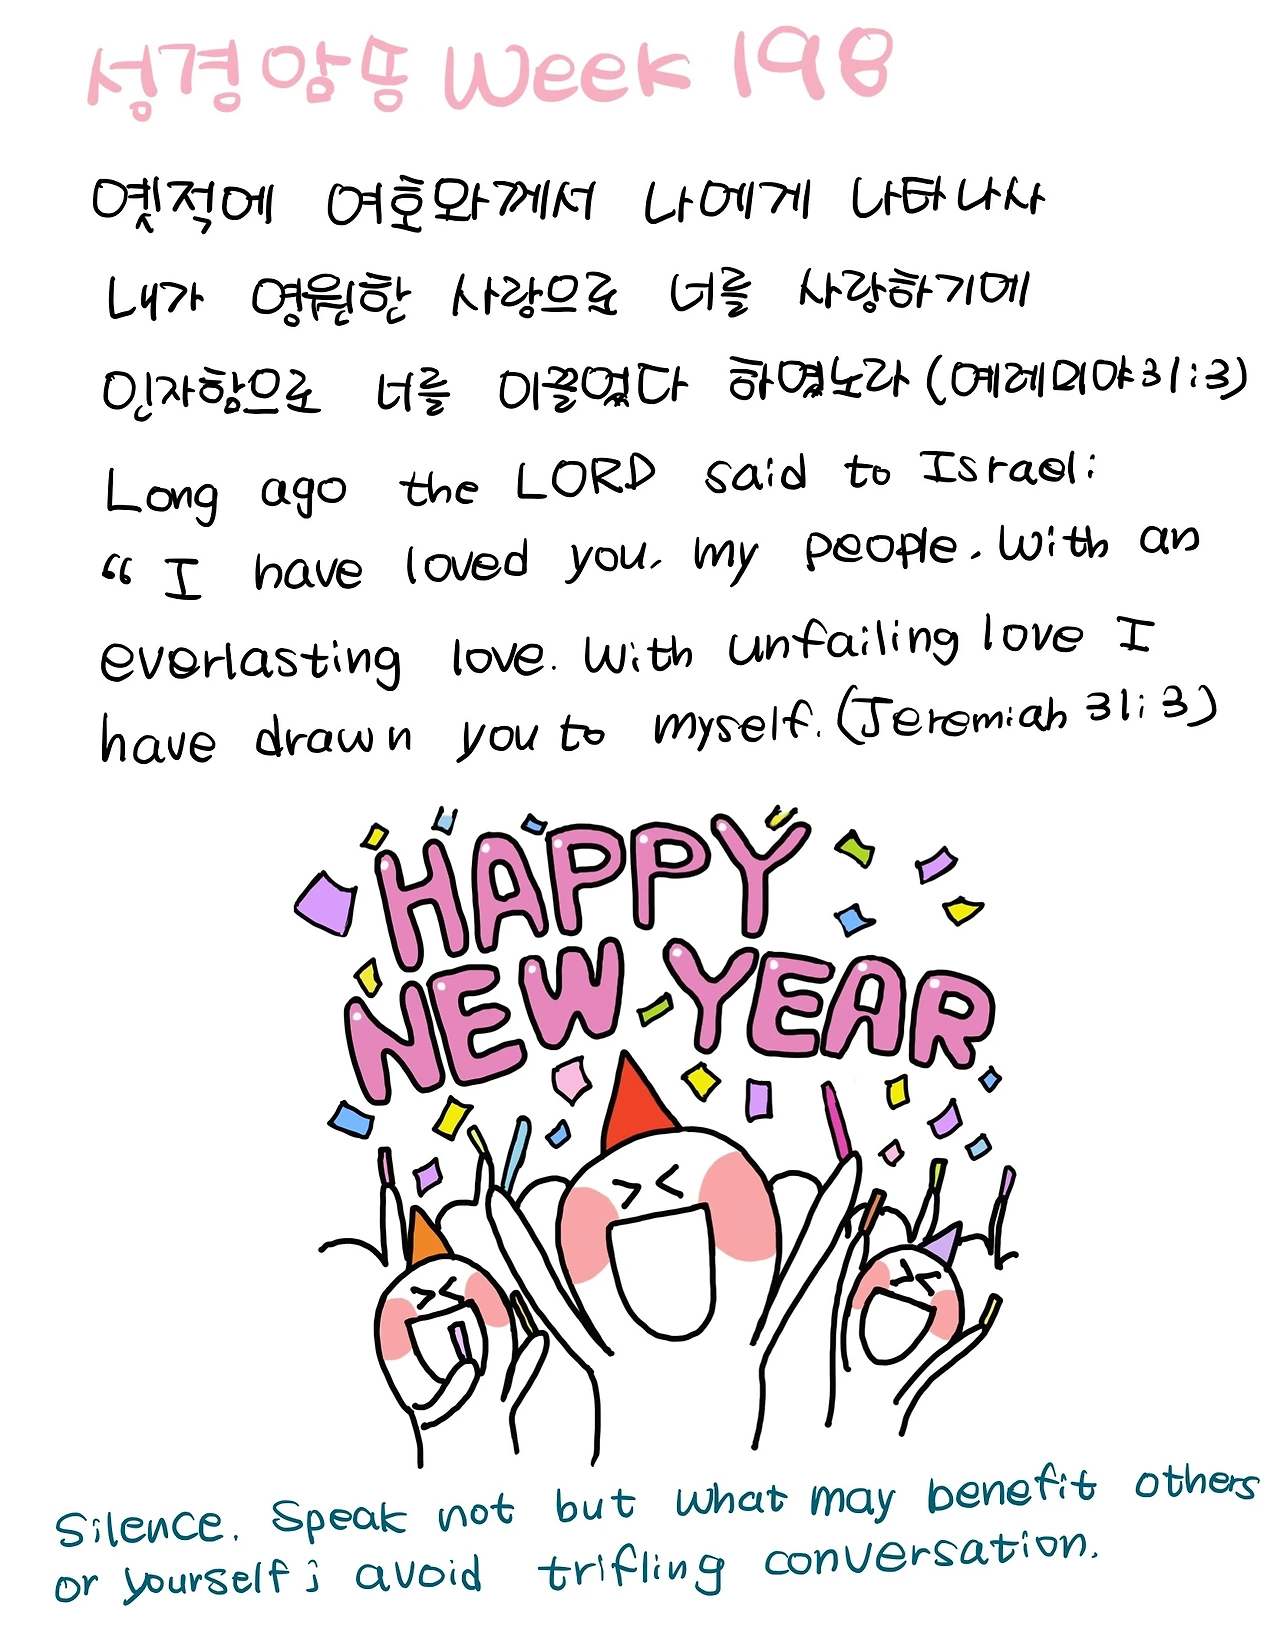 성경암송 Week 198
옛적에 여호와께서 나에게 나타나사
내가 영원한 사랑으로 너를 사랑하기에
인자함으로 너를 이끌었다 하였노라 (예레미야 31:3)
Long ago the LORD said to Israel:
“I have loved you, my people, with an
everlasting love. With unfailing love I
have drawn you to myself. (Jeremiah 31:3)
HAPPY
NEW YEAR
Silence. Speak not but what may benefit others
or yourself; avoid trifling conversation.